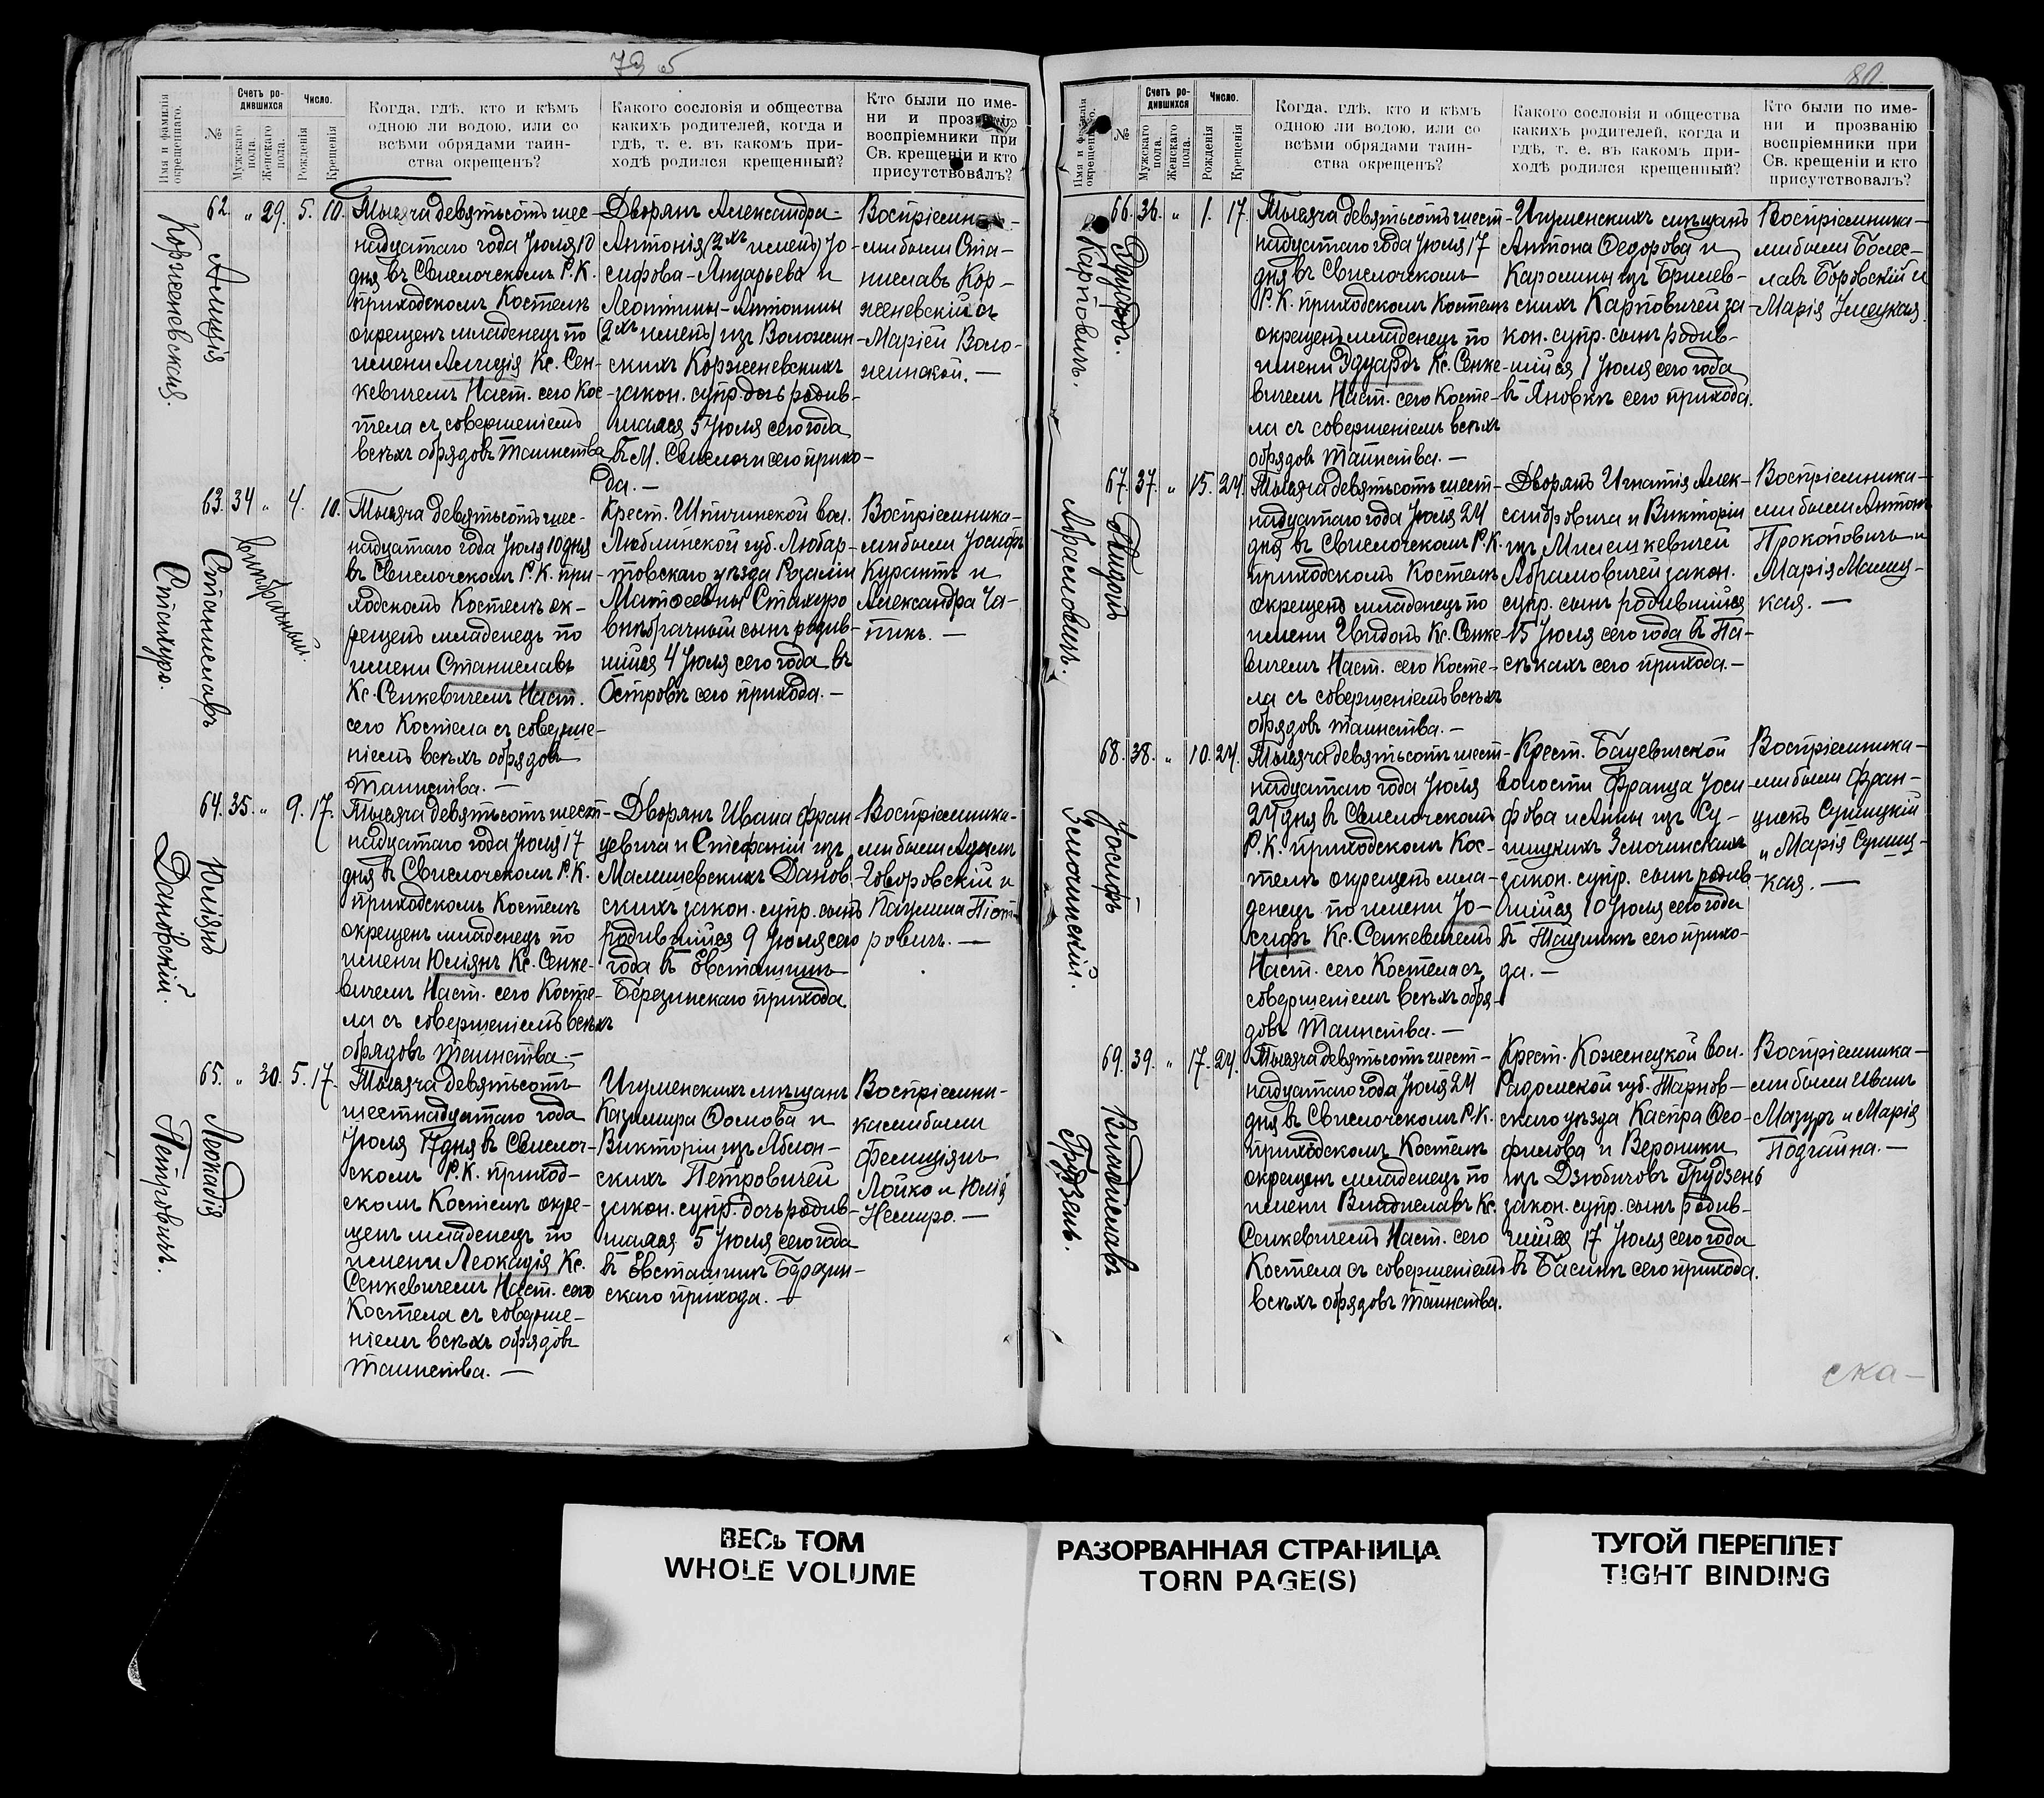 79 об
80.
Имя и фамилія окрещеннаго.
№
Счетъ родившихся
Мужскаго пола.
Женскаго пола.
Число.
Рожденія
Крещенія
Когда, гдѣ, кто и кѣмъ
одною ли водою, или со
всѣми обрядами таин-
ства окрещенъ?
Какого сословія и общества
какихъ родителей, когда и
гдѣ, т. е. въ какомъ при-
ходѣ родился крещенный?
Кто были по име-
ни и прозванію
воспріемники при
Св. крещеніи и кто
присутствовалъ?
Алиція
Корженевская.
62. „ 29. 5. 10.
Тысяча девятьсотъ шест-
надцатаго года Іюля 10
дня въ Свислочскомъ Р. К.
приходскомъ Костелѣ
окрещенъ младенецъ по
имени Алиція Кс. Сен-
кевичемъ Наст. сего Кос-
тела съ совершеніемъ
всѣхъ обрядовъ таинства
Дворянъ Александра-
Антонія (2хъ именъ) Іо-
сифова-Андарьева и
Леонтины-Антонины
(2хъ именъ) изъ Воложин-
скихъ Корженевскихъ
закон. супр. дочь родив-
шаяся 5 Іюля сего года
въ М. Свислочи сего прихо-
да. —
Воспріемника-
ми были Ста-
ниславъ Кор-
женевскій съ
Маріей Воло-
жинской. —
Станиславъ
Стахуро.
внѣбрачный.
63. 34 „ 4. 10.
Тысяча девятьсотъ шес-
надцатаго года Іюля 10 дня
въ Свислочскомъ Р. К. при-
ходскомъ Костелѣ ок-
рещенъ младенецъ по
имени Станиславъ
Кс. Сенкевичемъ Наст.
сего Костела съ соверше-
ніемъ всѣхъ обрядовъ
таинства. —
Крест. вол.
Люблинской губ. Любар-
товскаго уѣзда Розаліи
Матѳеевны Стахуро
внѣбрачный сынъ родив-
шійся 4 Іюля сего года въ
Островѣ сего прихода. —
Воспріемника-
ми были Іосифъ
Курантъ и
Александра Ча-
пикъ. —
Юліянъ
Дановскій.
64. 35. „ 9. 17.
Тысяча девятьсотъ шест-
надцатаго года Іюля 17
дня въ Свислочскомъ Р. К.
приходскомъ Костелѣ
окрещенъ младенецъ по
имени Юліянъ Кс. Сенке-
вичемъ Наст. сего Косте-
ла съ совершеніемъ всѣхъ
обрядовъ таинства. —
Дворянъ Ивана Фран-
цевича и Стефаніи изъ
Малишевскихъ Данов-
скихъ закон. супр. сынъ
родившійся 9 Іюля сего
года въ
Березинскаго прихода
Воспріемника-
ми были Адамъ
Говоровскій и
Паулина Піот-
ровичъ. —
Леокадія
Петровичъ.
65. „ 30. 5. 17.
Тысяча девятьсотъ
шестнадцатаго года
Іюля 17 дня въ Свислоч-
скомъ Р. К. приход-
скомъ Костелѣ окре-
щенъ младенецъ по
имени Леокадія Кс.
Сенкевичемъ Наст. сего
Костела съ соверше-
ніемъ всѣхъ обрядовъ
таинства. —
Игуменскихъ мѣщанъ
Казимира Ѳомова и
Викторіи изъ Аблон-
скихъ Петровичей
закон. супр. дочь родив-
шаяся 5 Іюля сего года
въ Березин-
скаго прихода. —
Воспріемни-
ками были
Фелиціянъ
Лойко и Юлія
Немиро. —
Имя и фамилія окрещеннаго.
№
Счетъ родившихся
Мужскаго пола.
Женскаго пола.
Число.
Рожденія
Крещенія
Когда, гдѣ, кто и кѣмъ
одною ли водою, или со
всѣми обрядами таин-
ства окрещенъ?
Какого сословія и общества
какихъ родителей, когда и
гдѣ, т. е. въ какомъ при-
ходѣ родился крещенный?
Кто были по име-
ни и прозванію
воспріемники при
Св. крещеніи и кто
присутствовалъ?
Эдуардъ.
Карповичъ.
66. 36. „ 1. 17.
Тысяча девятьсотъ шест-
надцатаго года Іюля 17
дня въ Свислочскомъ
Р. К. приходскомъ Костелѣ
окрещенъ младенецъ по
имени Эдуардъ Кс. Сенке-
вичемъ Наст. сего Косте-
ла съ совершеніемъ всѣхъ
обрядовъ таинства. —
Игуменскихъ мѣщанъ
Антона Ѳедорова и
Каролины изъ Брилев-
скихъ Карповичей за-
кон. супр. сынъ родив-
шійся 1 Іюля сего года
въ Яновкѣ сего прихода.
Воспріемника-
ми были Болес-
лавъ Боровскій и
Марія
Гвидонъ
Абрамовичъ.
67. 37. „ 15. 24.
Тысяча девятьсотъ шест-
надцатаго года Іюля 24
дня въ Свислочскомъ Р. К.
приходскомъ Костелѣ
окрещенъ младенецъ по
имени Гвидонъ Кс. Сенке-
вичемъ Наст. сего Косте-
ла съ совершеніемъ всѣхъ
обрядовъ таинства. —
Дворянъ Игнатія Алек-
сандровича и Викторіи
изъ Милешкевичей
Абрамовичей закон.
супр. сынъ родившійся
15 Іюля сего года въ Па-
сѣкахъ сего прихода. —
Воспріемника-
ми были Антонъ
Прокоповичъ и
Марія
кая. —
Іосифъ
Змочинскій.
68. 38. „ 10. 24.
Тысяча девятьсотъ шест-
надцатаго года Іюля
24 дня въ Свислочскомъ
Р. К. приходскомъ Кос-
телѣ окрещенъ мла-
денецъ по имени Іо-
сифъ Кс. Сенкевичемъ
Наст. сего Костела съ
совершеніемъ всѣхъ обря-
довъ таинства. —
Крест. Бацевичской
волости Франца Іоси-
фова и Анны изъ Су-
пицкихъ Змочинскихъ
закон. супр. сынъ родив-
шійся 10 Іюля сего года
въ сего прихо-
да. —
Воспріемника-
ми были Фран-
цискъ Супицкій
и Марія Супиц-
кая. —
Владиславъ
Грудзень.
69. 39. „ 17. 24.
Тысяча девятьсотъ шест-
надцатаго года Іюля 24
дня въ Свислочскомъ Р. К.
приходскомъ Костелѣ
окрещенъ младенецъ по
имени Владиславъ Кс.
Сенкевичемъ Наст. сего
Костела съ совершеніемъ
всѣхъ обрядовъ таинства.
Крест. Коженецкой вол.
Радомской губ. Тарнов-
скаго уѣзда Каспра Ѳео-
филова и Вероники
изъ Дзюбичовъ Грудзень
закон. супр. сынъ родив-
шійся 17 Іюля сего года
въ Басинѣ сего прихода.
Воспріемника-
ми были Иванъ
Мазуръ и Марія
Подгайна. —
ска-
ВЕСЬ ТОМ
WHOLE VOLUME
РАЗОРВАННАЯ СТРАНИЦА
TORN PAGE(S)
ТУГОЙ ПЕРЕПЛЕТ
TIGHT BINDING